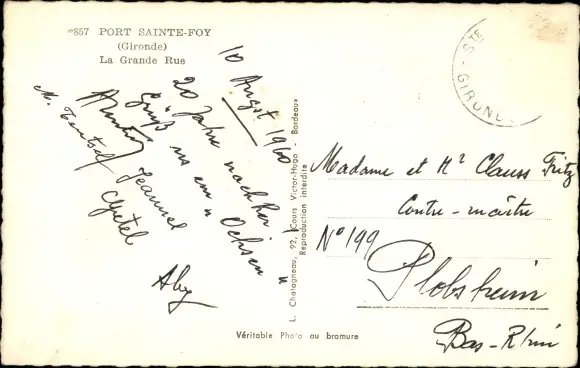 857 PORT SAINTE-FOY
(Gironde)
La Grande Rue
10 August 1960
20 Jahre nach
Gruß
Ochsen
Jeannel
Aby
L. Chatagneau, 92, Cours Victor-Hugo - Bordeaux
Reproduction interdite
Véritable Photo au bromure
STE
GIRONDE
Madame et Mr Clauss Fritz
Contre-maître
N° 199
Plobsheim
Bas-Rhin